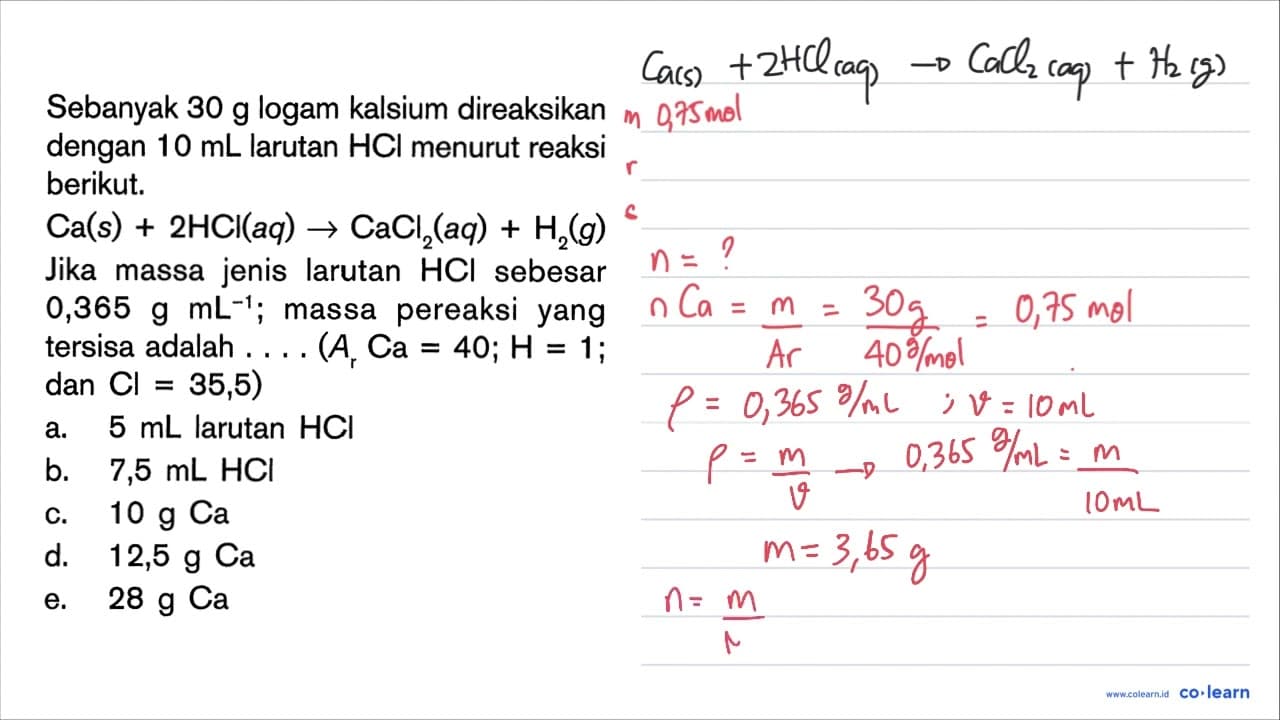 Sebanyak 30 g logam kalsium direaksikan
dengan 10 mL larutan HCl menurut reaksi
berikut.
Ca(s) + 2HCl(aq) → CaCl₂(aq) + H₂(g)
Jika massa jenis larutan HCl sebesar
0,365 g mL⁻¹; massa pereaksi yang
tersisa adalah . . . . (Aᵣ Ca = 40; H = 1;
dan Cl = 35,5)
a. 5 mL larutan HCl
b. 7,5 mL HCl
c. 10 g Ca
d. 12,5 g Ca
e. 28 g Ca
Ca(s) + 2HCl(aq) → CaCl₂(aq) + H₂(g)
m 0,75 mol
r
s
n = ?
n Ca = m/Ar = 30g/40 g/mol = 0,75 mol
ρ = 0,365 g/mL ; v = 10 mL
ρ = m/v → 0,365 g/mL = m/10 mL
m = 3,65 g
n = m/
www.colearn.id co·learn